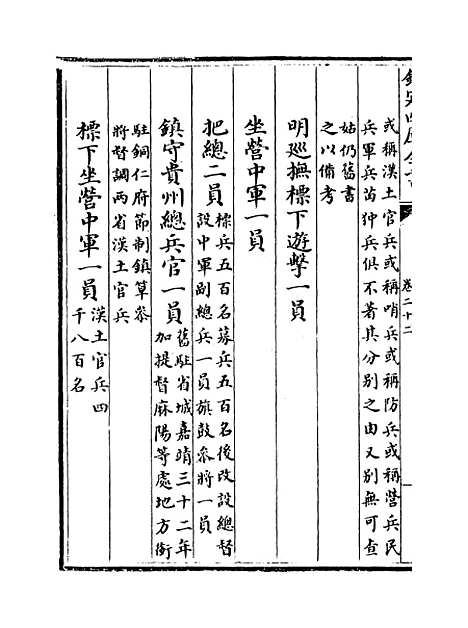 欽定四庫全書
卷二十二
或稱漢土官兵或稱哨兵或稱防兵或稱營兵民
兵軍兵苗狆兵俱不著其分別之由又別無可查
姑仍舊書
之以備考
明巡撫標下遊擊一員
坐營中軍一員
把總二員標兵五百名募兵五百名後改設總督
設中軍副總兵一員旗鼓叅將一員
鎮守貴州總兵官一員舊駐省城嘉靖三十二年
加提督麻陽等處地方銜
駐銅仁府節制鎮筸叅
將督調兩省漢土官兵
標下坐營中軍一員漢土官兵四
千八百名